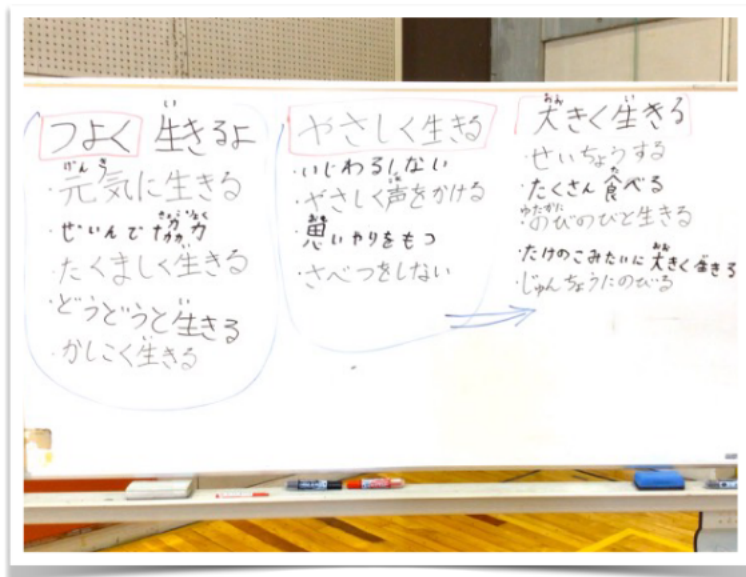 つよく 生きるよ
・元気に生きる
・ぜいんで協力
・たくましく生きる
・どうどうと生きる
・かしこく生きる
やさしく生きる
・いじわるしない
・やさしく声をかける
・思いやりをもつ
・さべつをしない
大きく生きる
・せいちょうする
・たくさん食べる
・のびのびと生きる
・たけのこみたいに大きく生きる
・じゅんちょうにのびる